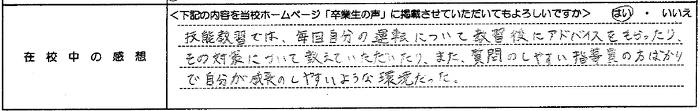 <下記の内容を当校ホームページ「卒業生の声」に掲載させていただいてもよろしいですか> はい ・ いいえ
在校中の感想
技能教習では、毎回自分の運転について教習後にアドバイスをもらったり、
その対策について教えていただいたり、また、質問のしやすい指導員の方ばかり
で自分が成長のしやすいような環境だった。